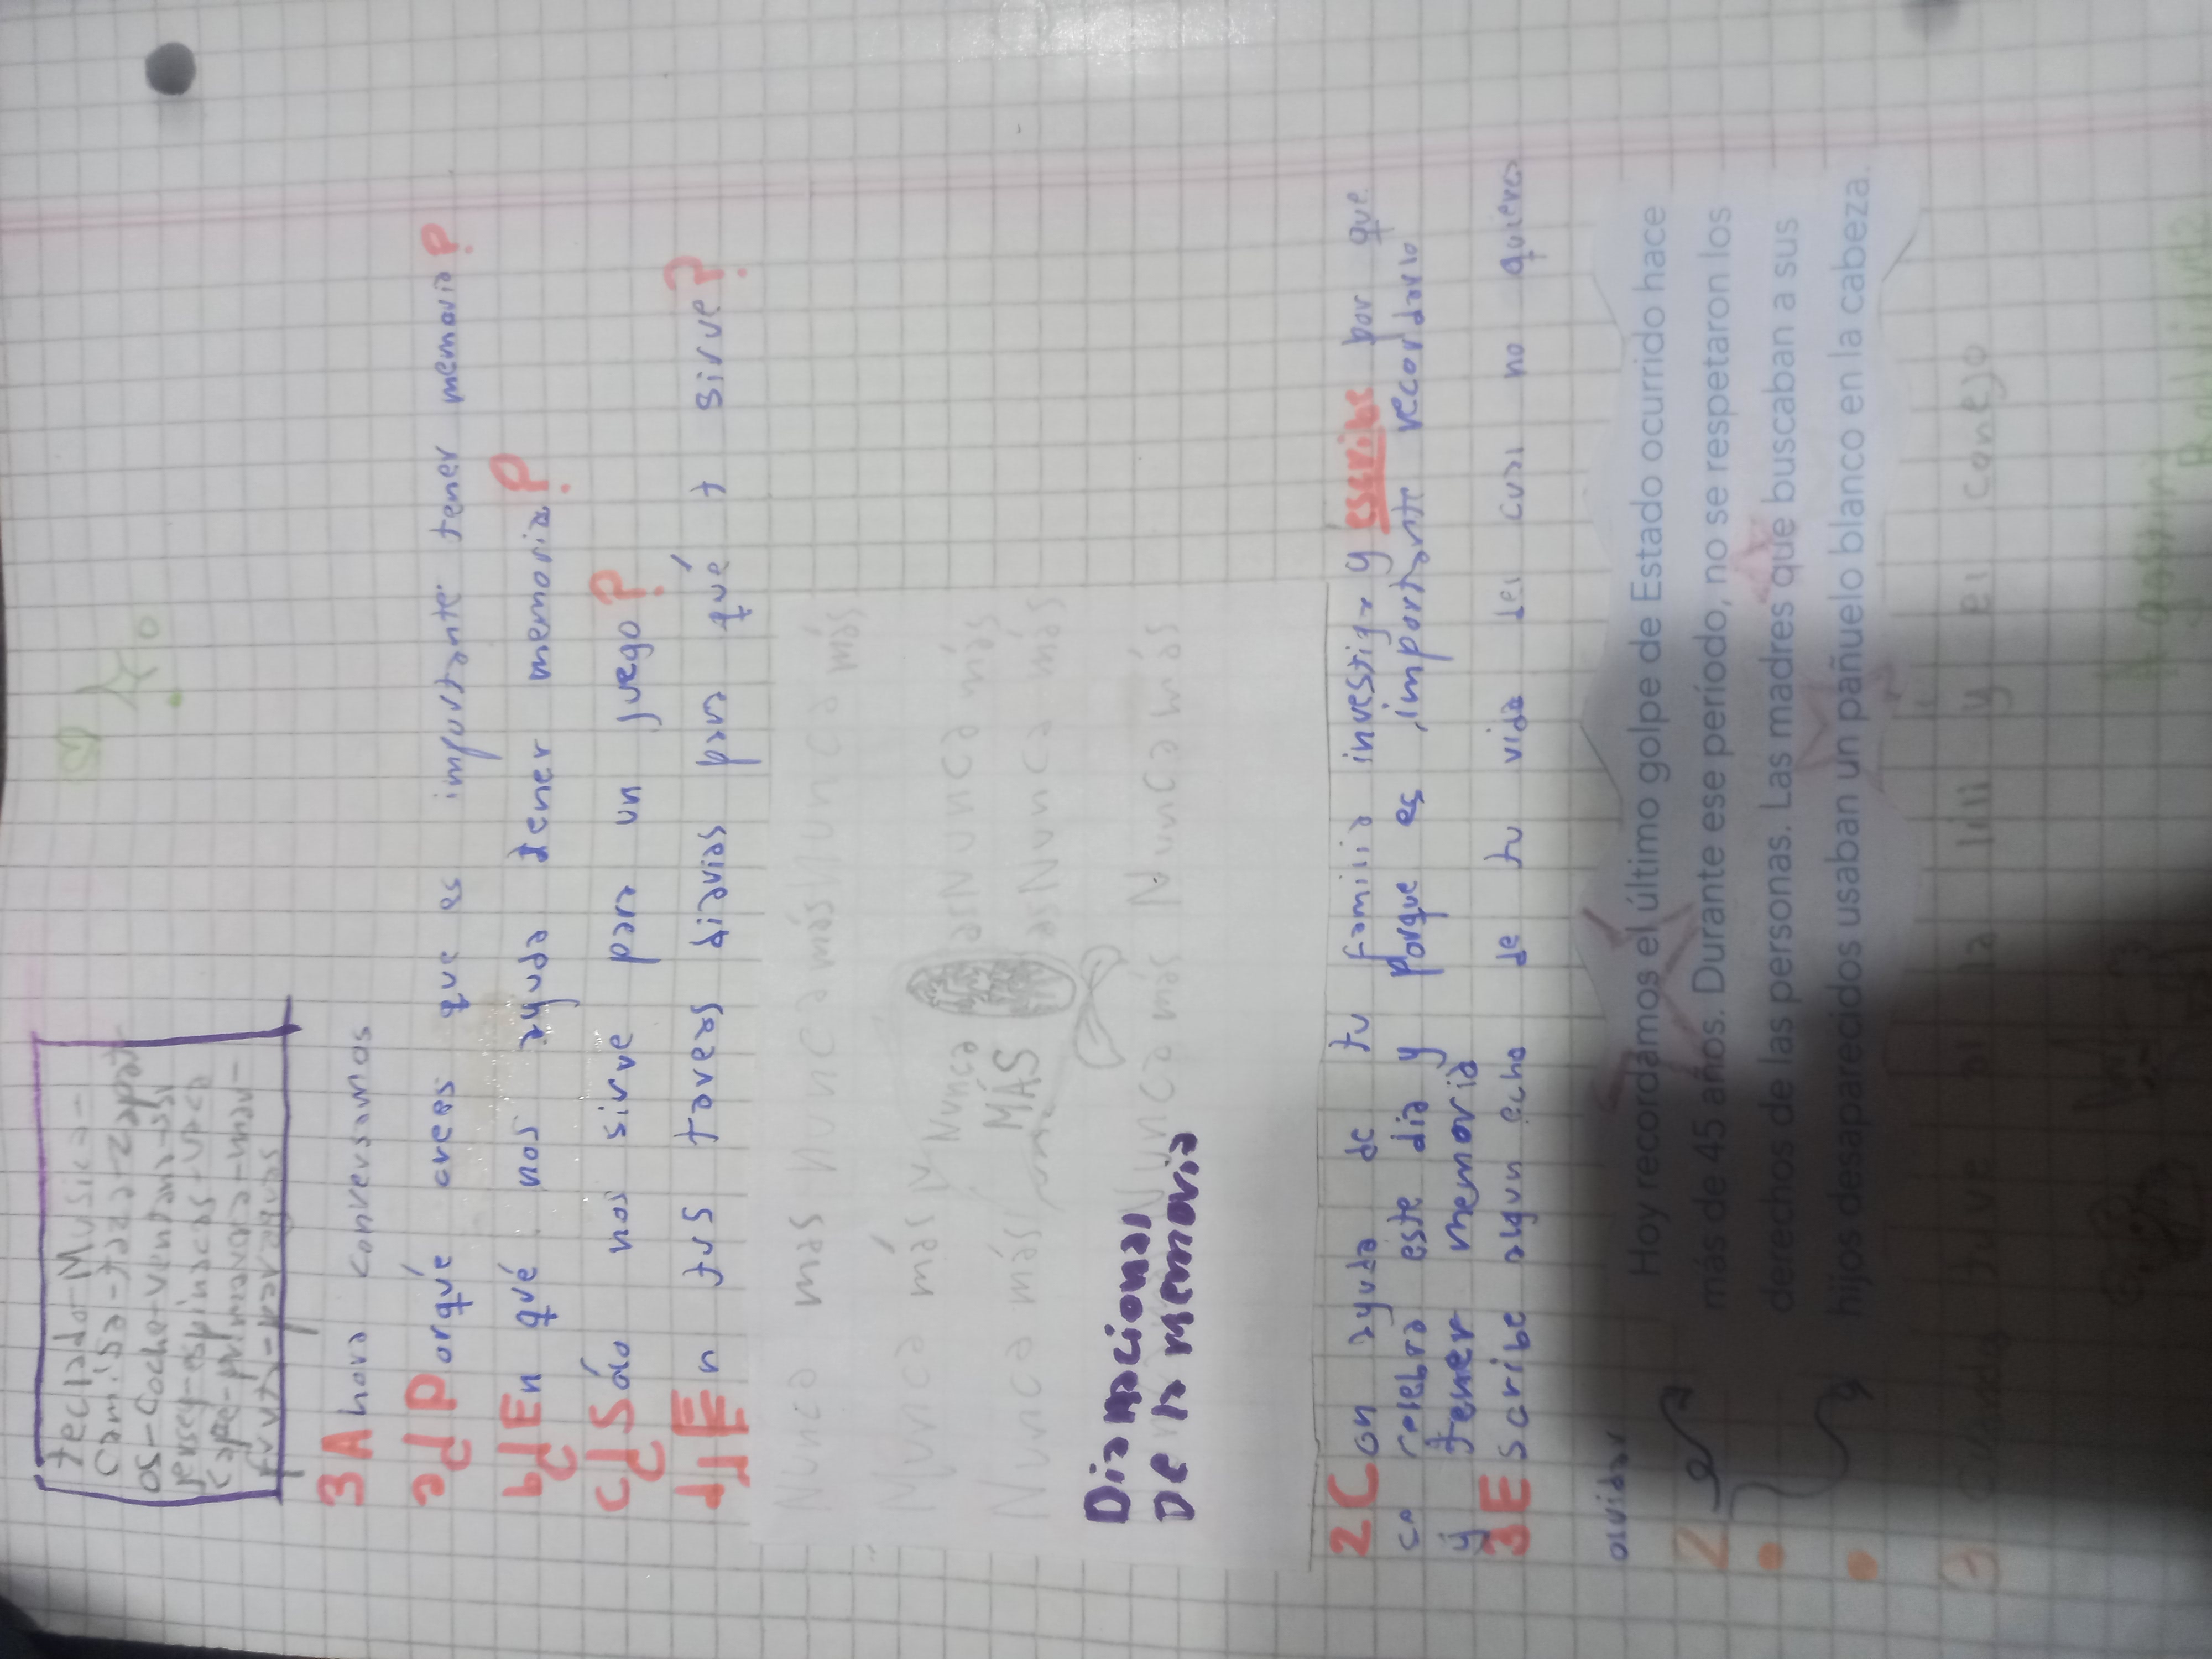 teclado-Musica-
camisa-taza-zapat
os-coche-ventana-si
jersey-espinacas-vaca
primavera-man-
fruta-paraguas
3 Ahora conversamos
a) Porqué crees que es importante tener memoria?
b) En qué nos ayuda tener memoria?
c) Sólo nos sirve para un juego?
d) En tus tareas diarias para qué t sirve?
Nunca mas Nunca más Nunca más
Nunca más N
Nunca MÁS
as Nunca más
Nunca más
as Nunca más
Nunca mas Nunca más
Dia nacional
De la memoria
2 Con ayuda de tu familia investiga y escribe por que
ce celebra este dia y porque es importante recordarlo
y tener memoria
3 Escribe algun echo de tu vida del cual no quieres
olvidar
2
Hoy recordamos el último golpe de Estado ocurrido hace
más de 45 años. Durante ese período, no se respetaron los
derechos de las personas. Las madres que buscaban a sus
hijos desaparecidos usaban un pañuelo blanco en la cabeza.